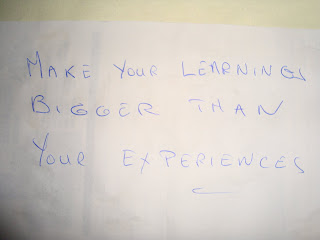 MAKE YOUR LEARNINGS
BIGGER THAN
YOUR EXPERIENCES